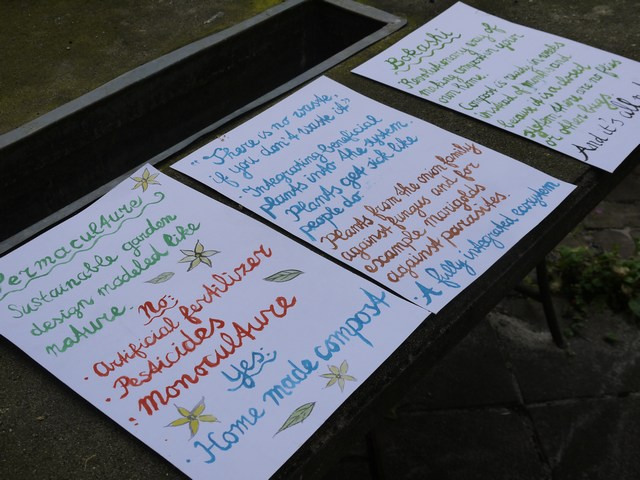 Permaculture
Sustainable garden
design modeled like
nature.
No:
· Artificial fertilizer
· Pesticides
· Monoculture
Yes:
· Home made compost
"There is no waste,
if you don't waste it"
· Integrating beneficial
plants into the system.
Plants get sick like
people do.
Plants from the onion family
against fungus and for
example Marigolds
against parasites
· A fully integrated ecosystem
Bokashi
Revolutionary way of
making compost in your
own home.
Compost is ready in weeks
instead of months and
because it's a closed
system there are no flies
or other bugs.
And it's all